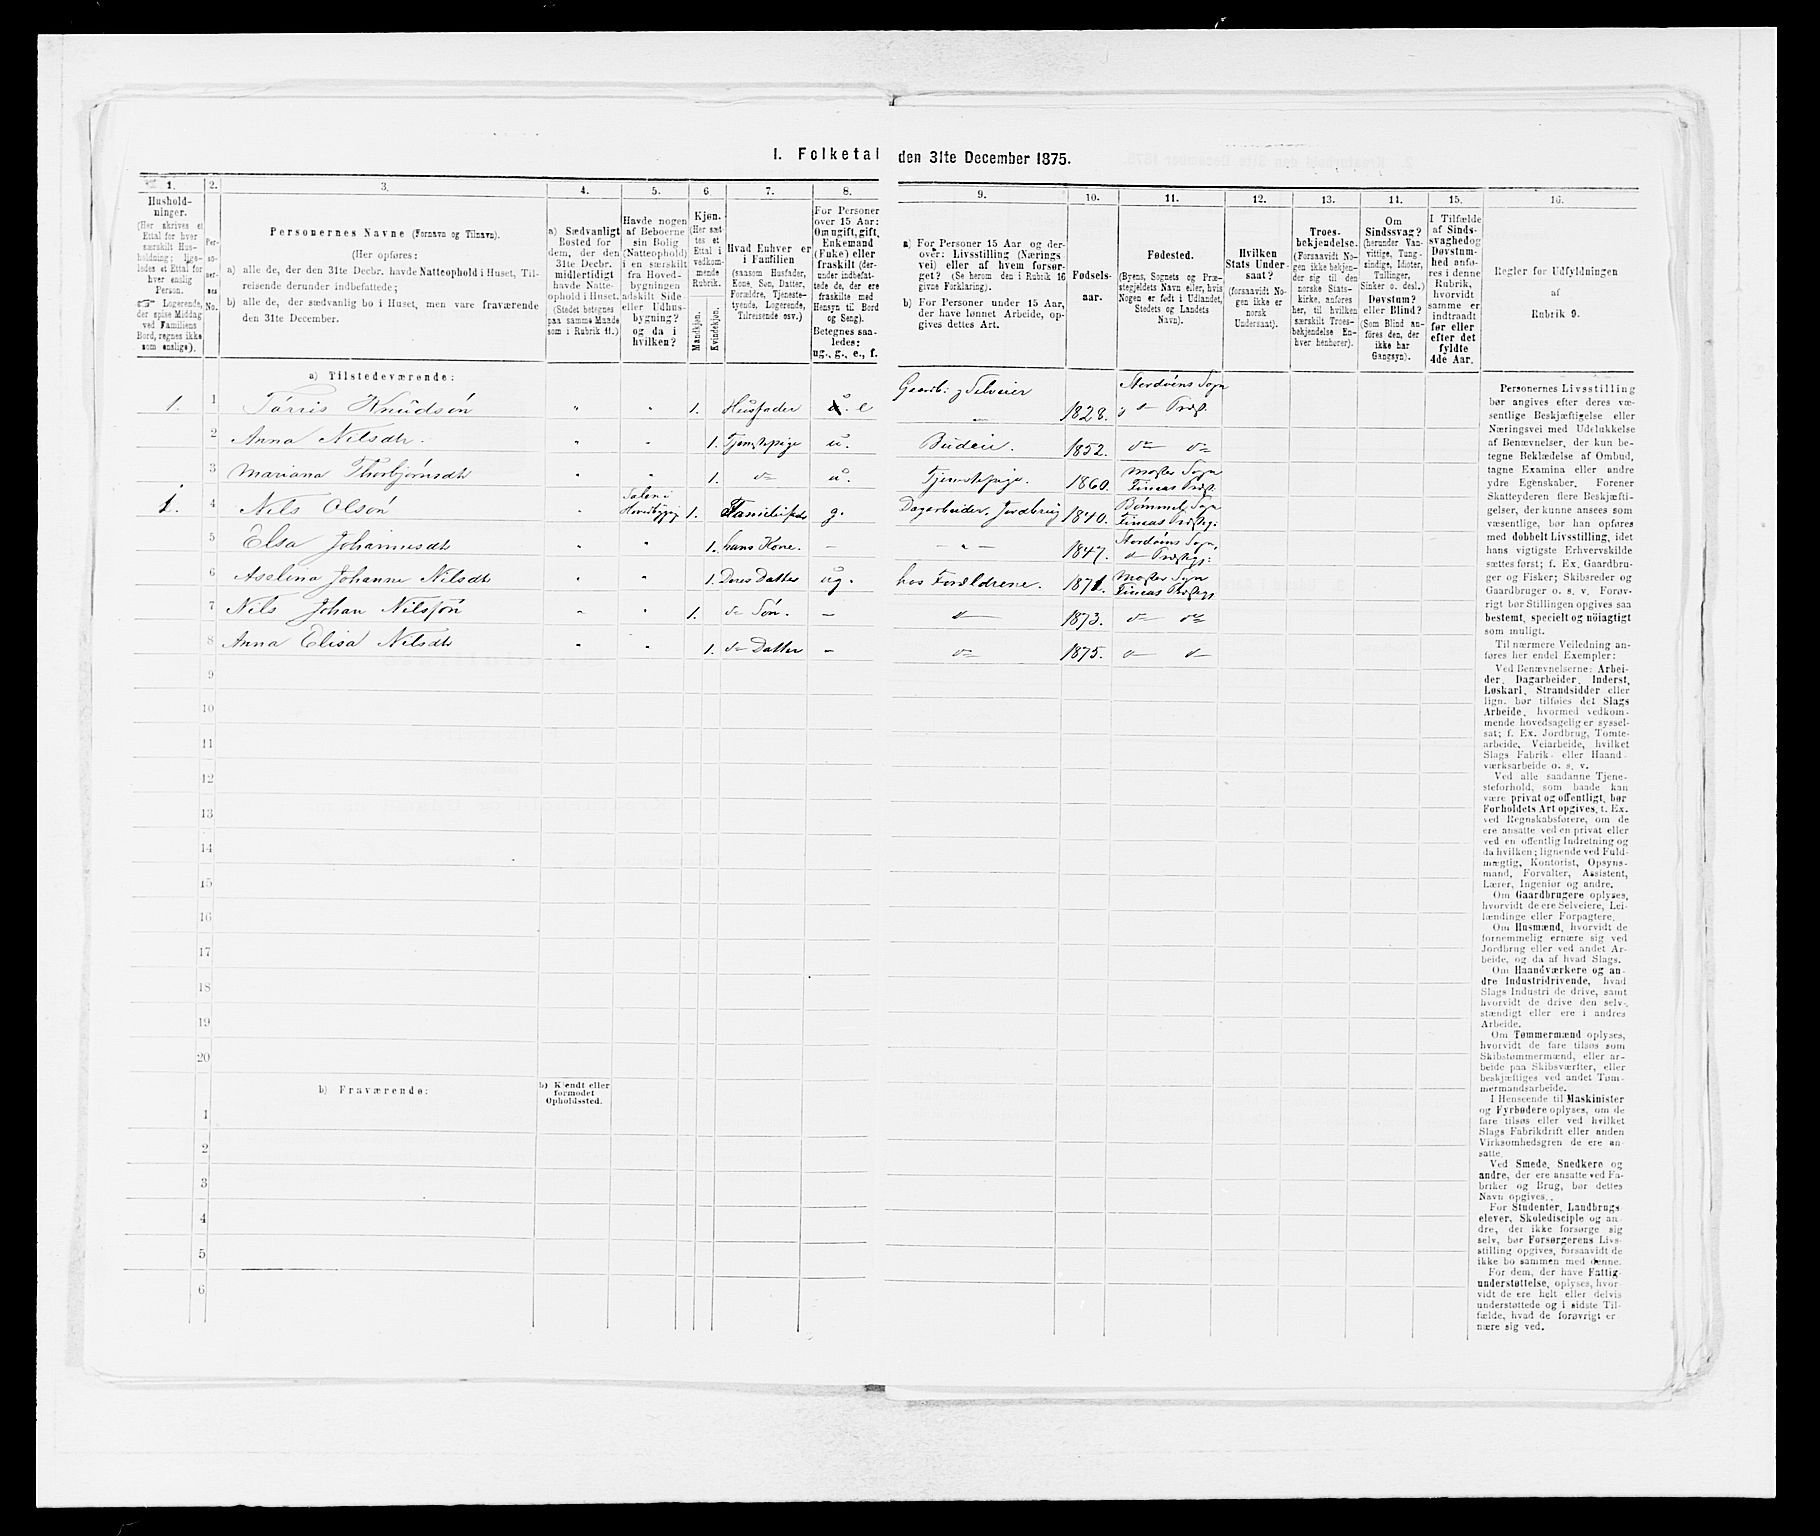 I. Folketal den 31te December 1875.
1. 2. 3. 4. 5. 6. 7. 8. 9. 10. 11. 12. 13. 14. 15. 16.
Hushold-
ninger.
(Her skrives et
Ettal for hver
særskilt Hus-
holdning; lige-
ledes et Ettal for
hver enslig
Person.
☞ Logerende,
der spise Middag
ved Familiens
Bord, regnes ikke
som enslige).
Per-
so-
ner-
nes
No.
Personernes Navne (Fornavn og Tilnavn).
(Her opføres:
a) alle de, der den 31te Decbr. havde Natteophold i Huset, Til-
reisende derunder indbefattede;
b) alle de, der sædvanlig bo i Huset, men vare fraværende
den 31te December.
a) Sædvanligt
Bosted for
dem, der den
31te Decbr.
midlertidigt
havde Natte-
ophold i Huset.
(Stedet betegnes
paa samme Maade
som i Rubrik 11.)
Havde nogen
af Beboerne
sin Bolig
(Natteophold)
i en særskilt
fra Hoved-
bygningen
adskilt Side-
eller Udhus-
bygning?
og da i
hvilken?
Kjøn.
(Her sæt-
tes et
Ettal i
vedkom-
mende
Rubrik.
Mandkjøn.
Kvindekjøn.
Hvad Enhver er
i Familien
(saasom Husfader,
Kone, Søn, Datter,
Forældre, Tjeneste-
tyende, Logerende,
Tilreisende osv.)
For Personer
over 15 Aar:
Om ugift, gift,
Enkemand
(Enke) eller
fraskilt (der-
under indbefat-
tede de, der ere
fraskilte med
Hensyn til Bord
og Seng).
Betegnes saa-
ledes:
ug., g., e., f.
a) For Personer 15 Aar og der-
over: Livsstilling (Nærings
vei) eller af hvem forsør-
get? (Se herom den i Rubrik 16
givne Forklaring).
b) For Personer under 15 Aar,
der have lønnet Arbeide, op-
gives dettes Art.
Fødsels-
aar.
Fødested.
(Byens, Sognets og Præ-
stegjeldets Navn eller, hvis
Nogen er født i Udlandet,
Stedets og Landets
Navn).
Hvilken
Stats Under-
saat?
(forsaavidt No-
gen ikke er
norsk
Undersaat).
Troes-
bekjendelse.
(Forsaavidt No-
gen ikke bekjen-
der sig til den
norske Stats-
kirke, anføres
her, til hvilken
særskilt Troes-
bekjendelse En-
hver henhører).
Om
Sindssvag?
(herunder Van-
vittige, Tung-
sindige, Idioter,
Tullinger,
Sinker o. desl.)
Døvstum?
eller Blind?
(Som Blind an-
føres den, der
ikke har
Gangsyn).
I Tilfælde
af Sinds-
svaghedog
Døvstum-
hed anfø-
res i denne
Rubrik,
hvorvidt
samme er
indtraadt
før eller
efter det
fyldte
4de Aar.
Regler for Udfyldningen
af
Rubrik 9.
a) Tilstedeværende:
1. 1 Tørris Knudsøn " " 1. Husfader e Gaardb: og Selveier 1828. Stordøens Sogn og do Præst.
2 Anna Nilsdtr. " " 1. Tjenstepige u. Budeie. 1852. do do
3 Mariana Thorbjørnsdtr " " 1. do u. Tjenstepige. 1860. Moster Sogn Finaas Præst.
1. 4 Nils Olsøn " 1. g. Dagarbeider, Jordbrug 1840. Bømmel Sogn Finaas Præsteg:
5 Elsa Johannesdtr " " 1. hans Kone. – – " – 1847. Stordøens Sogn do Præstegj:
6 Aselina Johanne Nilsdtr " " 1. Deres Datter ug. hos Forældrene. 1871. Moster Sogn Finaas Præsteg
7 Nils Johan Nilsøn " " 1. do Søn. – do 1873. do do
8 Anna Elisa Nilsdtr " " 1. do Datter – do 1875. do do
9
10
11
12
13
14
15
16
17
18
19
20
b) Fraværende:
b) Kjendt eller
formodet
Opholdssted.
1
2
3
4
5
6
Personernes Livsstilling
bør angives efter deres væ-
sentlige Beskjæftigelse eller
Næringsvei med Udelukkelse
af Benævnelser, der kun be-
tegne Beklædelse af Ombud,
tagne Examina eller andre
ydre Egenskaber. Forener
Skatteyderen flere Beskjæfti-
gelser, der kunne ansees som
væsentlige, bør han opføres
med dobbelt Livsstilling, idet
hans vigtigste Erhvervskilde
sættes først; f. Ex. Gaardbru-
ger og Fisker; Skibsreder og
Gaardbruger o. s. v. Forøv-
rigt bør Stillingen opgives saa
bestemt, specielt og nøiagtigt
som muligt.
Til nærmere Veiledning an-
føres her endel Exempler:
Ved Benævnelserne: Arbei-
der, Dagarbeider, Inderst,
Løskarl, Strandsidder eller
lign. bør tilføies det Slags
Arbeide, hvormed vedkom-
mende hovedsagelig er syssel-
sat; f. Ex. Jordbrug, Tomte-
arbeide, Veiarbeide, hvilket
Slags Fabrik- eller Haand-
værksarbeide o. s. v.
Ved alle saadanne Tjene-
steforhold, som baade kan
være privat og offentligt, bør
Forholdets Art opgives, t. Ex.
ved Regnskabsførere, om de
ere ansatte ved en privat eller
ved en offentlig Indretning og
da hvilken; lignende ved Fuld-
mægtig, Kontorist, Opsyns-
mand, Forvalter, Assistent,
Lærer, Ingeniør og andre.
Om Gaardbrugere oplyses,
hvorvidt de ere Selveiere, Lei-
lændinge eller Forpagtere.
Om Husmænd, hvorvidt de
fornemmelig ernære sig ved
Jordbrug eller ved andet Ar-
beide, og da af hvad Slags.
Om Haandværkere og an-
dre Industridrivende, hvad
Slags Industri de drive, samt
hvorvidt de drive den selv-
stændigt eller ere i andres
Arbeide.
Om Tømmermænd oplyses,
hvorvidt de fare tilsøs som
Skibstømmermænd, eller ar-
beide paa Skibsværfter, eller
beskjæftiges ved andet Tøm-
mermandsarbeide.
I Henseende til Maskinister
og Fyrbødere oplyses, om de
fare tilsøs eller ved hvilket
Slags Fabrikdrift eller anden
Virksomhedsgren de ere an-
satte.
Ved Smede, Snedkere og
andre, der ere ansatte ved Fa-
briker og Brug, bør dettes
Navn opgives.
For Studenter, Landbrugs
elever, Skoledisciple og an-
dre, der ikke forsørge sig
selv, bør Forsørgerens Livs-
stilling opgives, forsaavidt de
ikke bo sammen med denne.
For dem, der have Fattig-
understøttelse, oplyses, hvor-
vidt de ere helt eller delvis
understøttede og i sidste Til-
fælde, hvad de forøvrigt er-
nære sig ved.